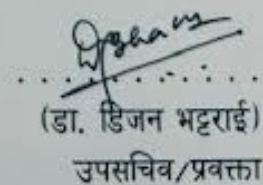 . . . . . . . . . . . . . .
(डा. डिजन भट्टराई)
उपसचिव/प्रवक्ता